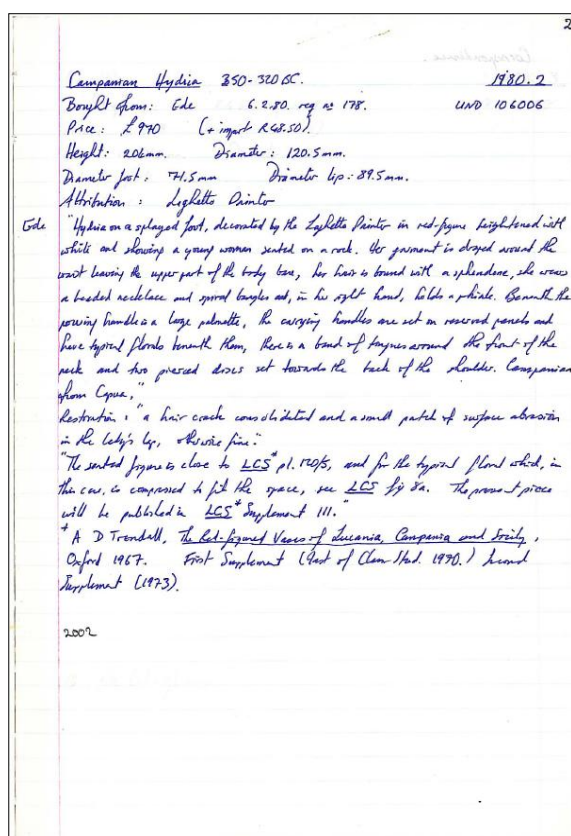 2
Campanian Hydria 350-320 BC. 1980.2
Bought from: Ede 6.2.80. reg no 178. UND 106006
Price: £970 (+ import R68.50)
Height: 206mm. Diameter: 120.5mm.
Diameter foot: 71.5mm Diameter lip: 89.5mm.
Attribution: Laghetto Painter
Ede "Hydria on a splayed foot, decorated by the Laghetto Painter in red-figure heightened with
white and showing a young woman seated on a rock. Her garment is draped around the
waist leaving the upper part of the body bare, her hair is bound with a sphendone, she wears
a beaded necklace and spiral bangles and, in her right hand, holds a phiale. Beneath the
pouring handle is a large palmette, the carrying handles are set on reserved panels and
have typical florals beneath them, there is a band of tongues around the front of the
neck and two pierced discs set towards the back of the shoulder. Campanian
from Capua."
Restoration: "a hair crack consolidated and a small patch of surface abrasion
in the lady's lap, otherwise fine".
"The seated figure is close to LCS* pl. 170/5, and for the typical floral which, in
this case, is compressed to fit the space, see LCS fig 8a. The present piece
will be published in LCS* Supplement III."
* A D Trendall, The Red-figured Vases of Lucania, Campania and Sicily,
Oxford 1967. First Supplement (Inst of Class Stud. 1970.) Second
Supplement (1973).
2002